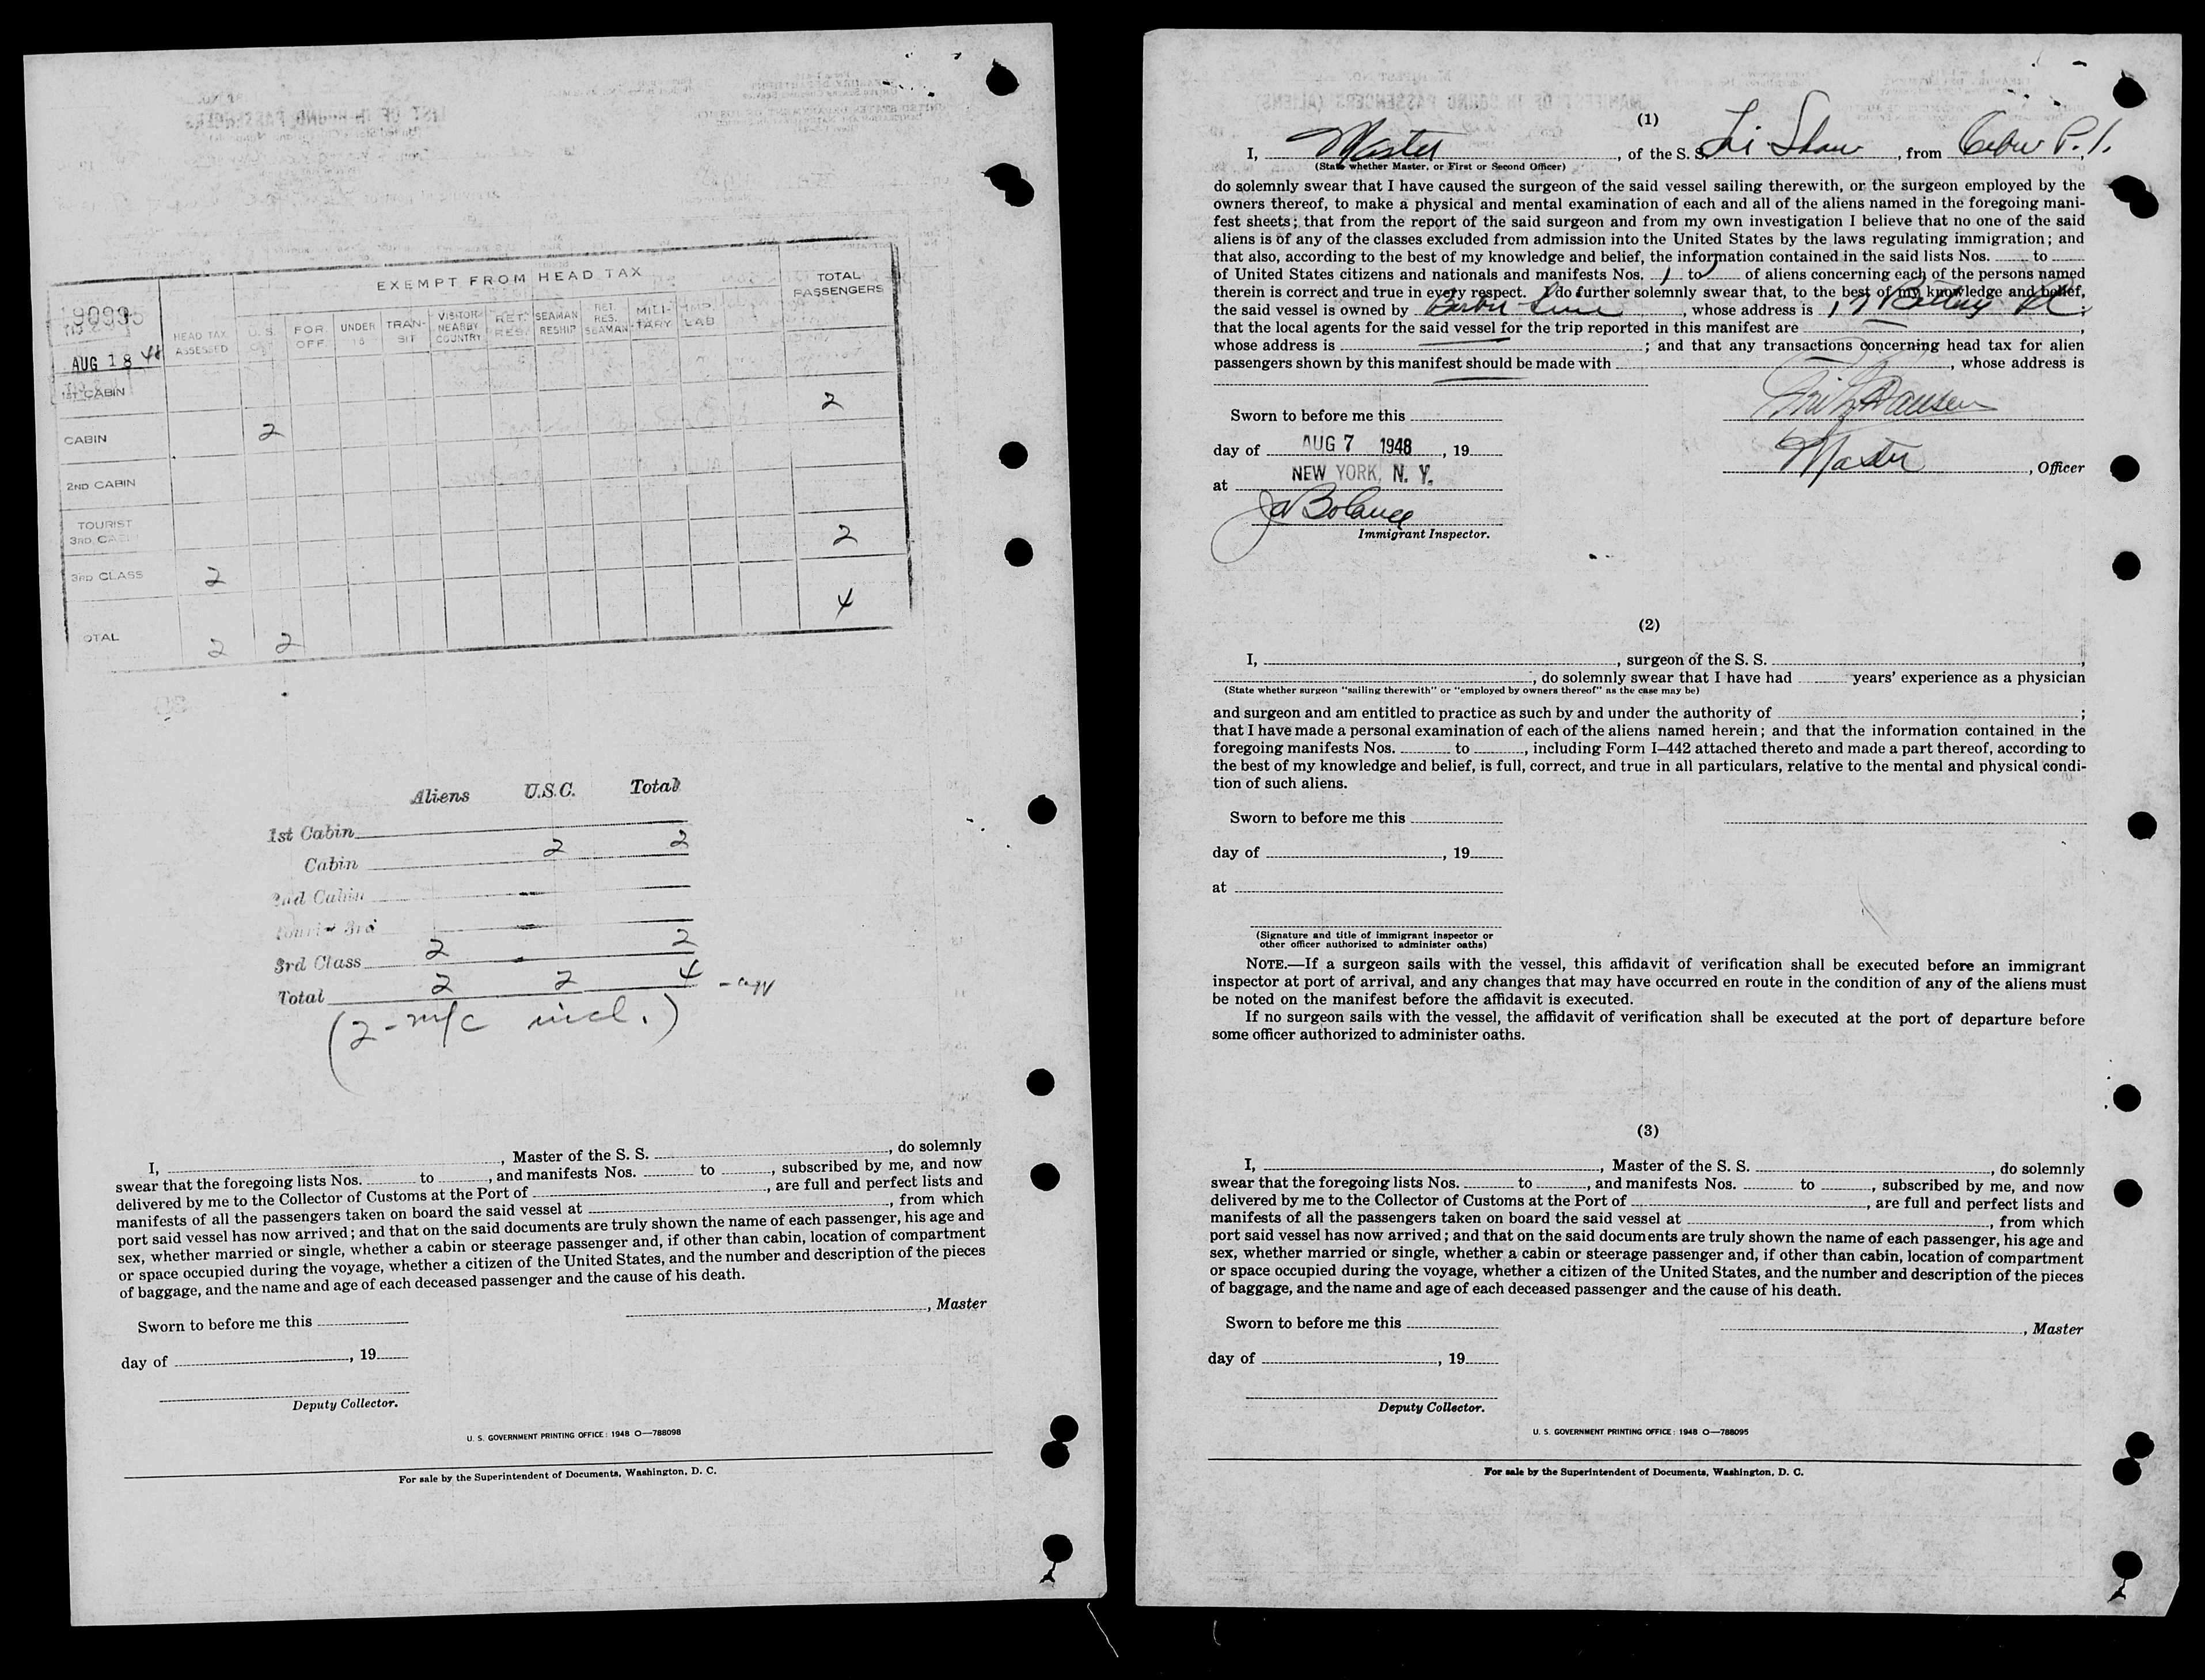 EXEMPT FROM HEAD TAX
TOTAL PASSENGERS
HEAD TAX ASSESSED
U. S.
FOR. OFF
UNDER 16
TRANSIT
VISITOR NEARBY COUNTRY
RET. RES.
SEAMAN RESHIP
RET. RES. SEAMAN
MILITARY
IMP LAB
AUG 18 48
1ST CABIN
2
CABIN 2
2ND CABIN
TOURIST
3RD CABIN
2
3RD CLASS 2
4
TOTAL 2 2
Aliens U.S.C. Total
1st Cabin
Cabin 2 2
2nd Cabin
Tourist 3rd
3rd Class 2 2
Total 2 2 4
(2-m/c incl.)
I, , Master of the S. S. , do solemnly
swear that the foregoing lists Nos. to , and manifests Nos. to , subscribed by me, and now
delivered by me to the Collector of Customs at the Port of , are full and perfect lists and
manifests of all the passengers taken on board the said vessel at , from which
port said vessel has now arrived; and that on the said documents are truly shown the name of each passenger, his age and
sex, whether married or single, whether a cabin or steerage passenger and, if other than cabin, location of compartment
or space occupied during the voyage, whether a citizen of the United States, and the number and description of the pieces
of baggage, and the name and age of each deceased passenger and the cause of his death.
, Master
Sworn to before me this
day of , 19
Deputy Collector.
U. S. GOVERNMENT PRINTING OFFICE: 1948 O—788098
For sale by the Superintendent of Documents, Washington, D. C.
(1)
I, Master , of the S. S. Li Shaw , from Cebu P. I.
(State whether Master, or First or Second Officer)
do solemnly swear that I have caused the surgeon of the said vessel sailing therewith, or the surgeon employed by the
owners thereof, to make a physical and mental examination of each and all of the aliens named in the foregoing mani-
fest sheets; that from the report of the said surgeon and from my own investigation I believe that no one of the said
aliens is of any of the classes excluded from admission into the United States by the laws regulating immigration; and
that also, according to the best of my knowledge and belief, the information contained in the said lists Nos. to
of United States citizens and nationals and manifests Nos. 1 to of aliens concerning each of the persons named
therein is correct and true in every respect. I do further solemnly swear that, to the best of my knowledge and belief,
the said vessel is owned by Barber Line , whose address is 17 Battery Pl ;
that the local agents for the said vessel for the trip reported in this manifest are ,
whose address is ; and that any transactions concerning head tax for alien
passengers shown by this manifest should be made with , whose address is
Sworn to before me this
day of AUG 7 1948 , 19
Master , Officer
at NEW YORK, N. Y.
Immigrant Inspector.
(2)
I, , surgeon of the S. S. ,
, do solemnly swear that I have had years' experience as a physician
(State whether surgeon "sailing therewith" or "employed by owners thereof" as the case may be)
and surgeon and am entitled to practice as such by and under the authority of ;
that I have made a personal examination of each of the aliens named herein; and that the information contained in the
foregoing manifests Nos. to , including Form I-442 attached thereto and made a part thereof, according to
the best of my knowledge and belief, is full, correct, and true in all particulars, relative to the mental and physical condi-
tion of such aliens.
Sworn to before me this
day of , 19
at
(Signature and title of immigrant inspector or
other officer authorized to administer oaths)
NOTE.—If a surgeon sails with the vessel, this affidavit of verification shall be executed before an immigrant
inspector at port of arrival, and any changes that may have occurred en route in the condition of any of the aliens must
be noted on the manifest before the affidavit is executed.
If no surgeon sails with the vessel, the affidavit of verification shall be executed at the port of departure before
some officer authorized to administer oaths.
(3)
I, , Master of the S. S. , do solemnly
swear that the foregoing lists Nos. to , and manifests Nos. to , subscribed by me, and now
delivered by me to the Collector of Customs at the Port of , are full and perfect lists and
manifests of all the passengers taken on board the said vessel at , from which
port said vessel has now arrived; and that on the said documents are truly shown the name of each passenger, his age and
sex, whether married or single, whether a cabin or steerage passenger and, if other than cabin, location of compartment
or space occupied during the voyage, whether a citizen of the United States, and the number and description of the pieces
of baggage, and the name and age of each deceased passenger and the cause of his death.
Sworn to before me this
, Master
day of , 19
Deputy Collector.
U. S. GOVERNMENT PRINTING OFFICE: 1948 O—788095
For sale by the Superintendent of Documents, Washington, D. C.